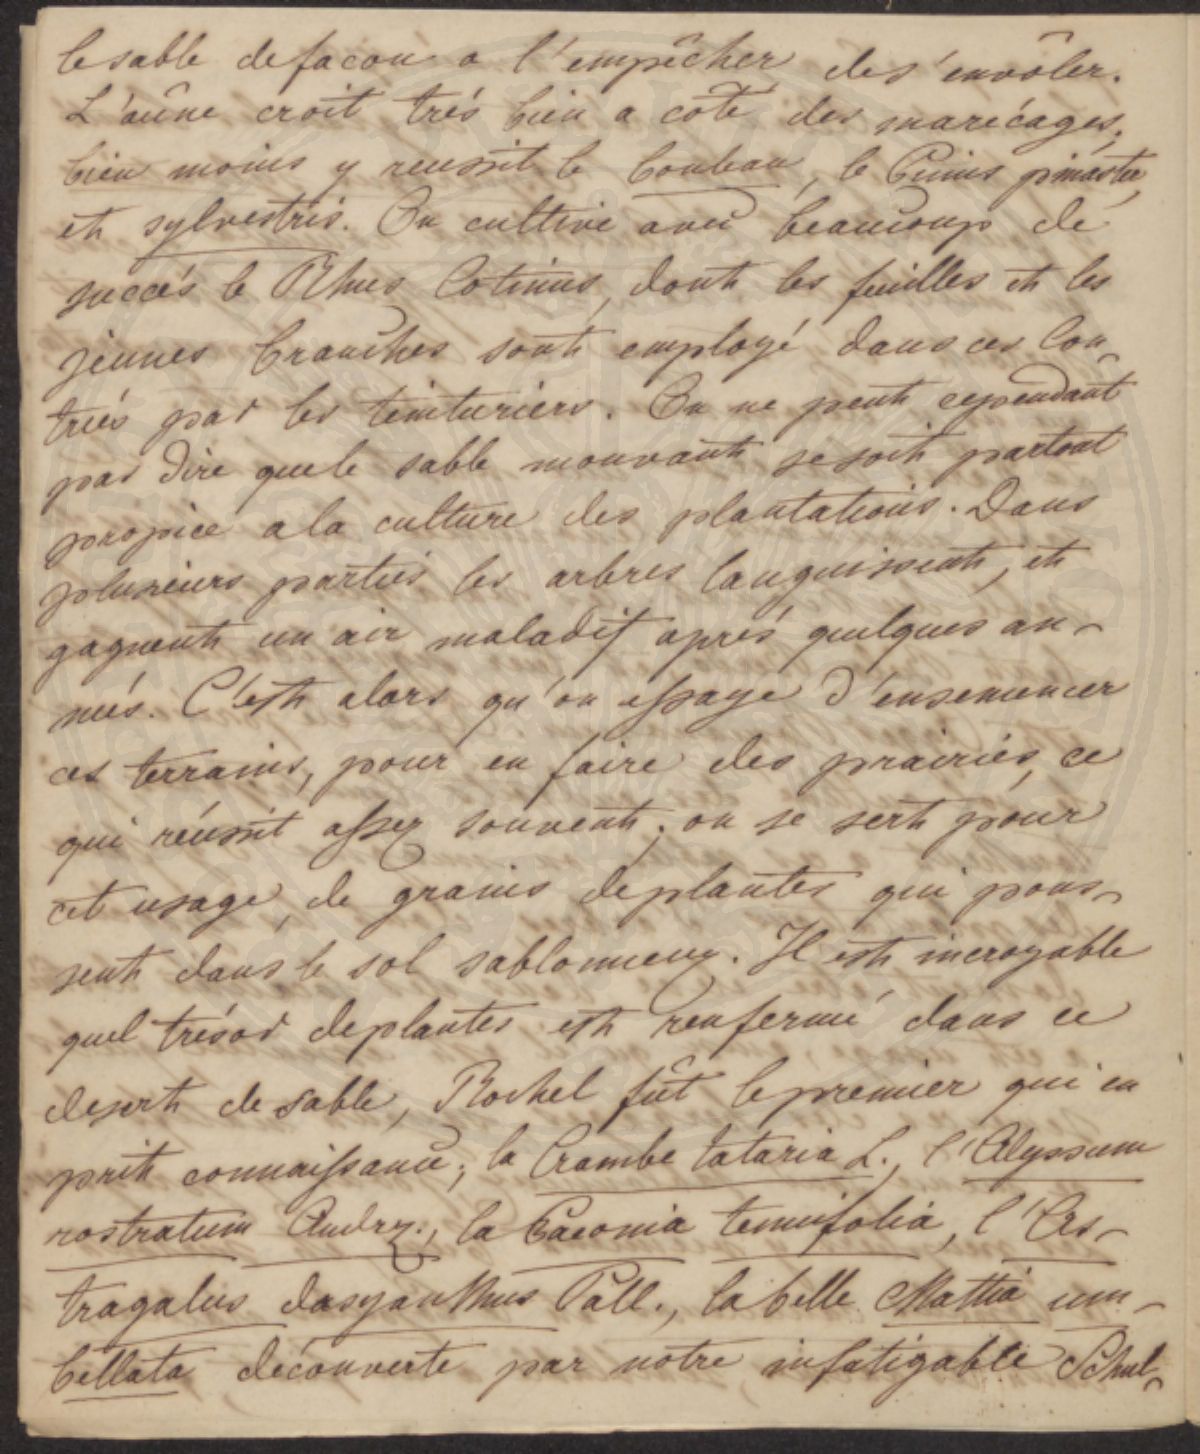 le sable de façon a l'empêcher des'envôler.
L'aûne croit trés bien a côte des marécages,
bien moins y reussit le bouleau, le Pinus pinaster
et sylvestris. On cultive avec beaucoup de
succés le Rhus Cotinus, dont les feuilles et les
jeunes branches sont employé dans ces Con-
triés par les teinturiers. On ne peut cependant
pas dire que le sable mouvant se soit partout
propice a la culture des plantations. Dans
plusieurs partiés les arbres languissent, et
gagnent un air maladif aprés quelques an-
neés. C'est alors qu'on essaye d'ensemencer
ces terrains, pour en faire des prairiés, ce
qui réussit assez souvent; on se sert pour
cet usage, de grains de plantes qui pous-
sent dans le sol sablonneux. Il est incroyable
quel trésor de plantes est renfermé dans ce
desert de sable, Rochel fût le premier qui en
prit connaissance; la Crambe tataria L., l'Alyssum
rostratum Andrz., la Paeonia tenuifolia, l'As-
tragalus dasyanthus Pall., la belle Mattia um-
bellata découverte par notre infatigable Schul-